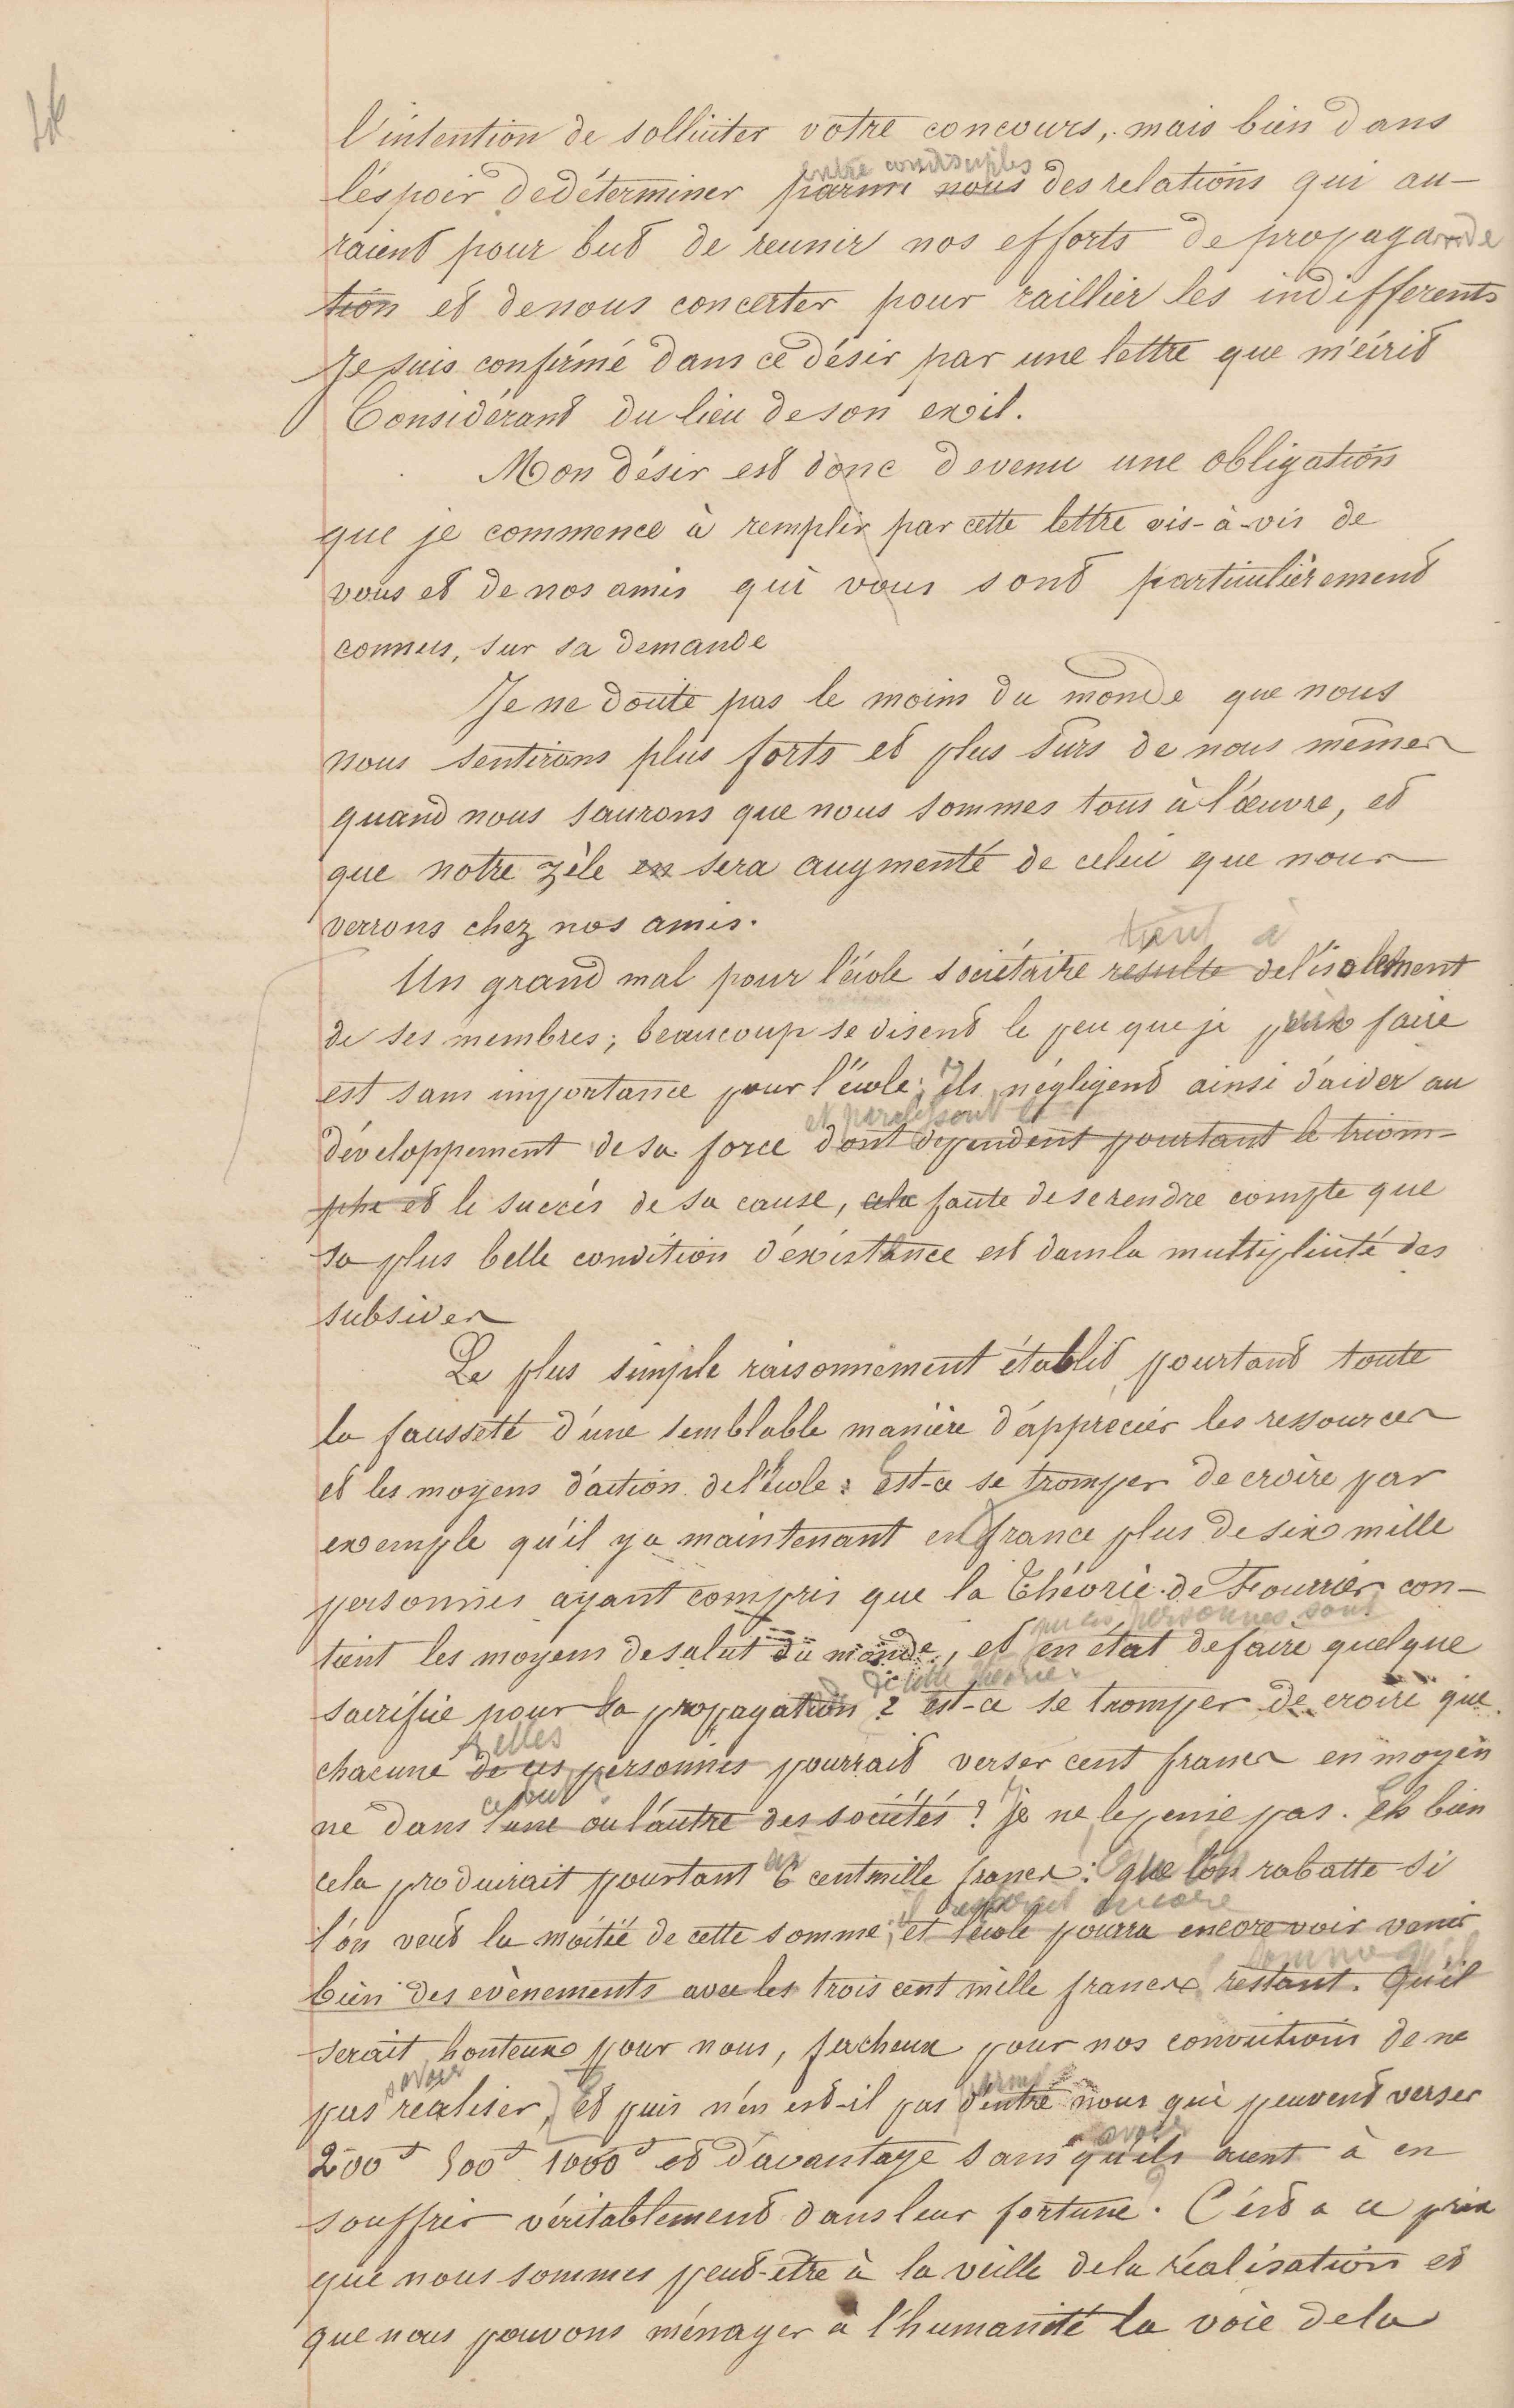 l'intention de solliciter votre concours, mais bien dans
entre condisciples
l'espoir de déterminer parmi nous des relations qui au-
raient pour but de reunir nos efforts de propagande
tion et de nous concerter pour raillier les indifferents
Je suis confirmé dans ce désir par une lettre que m'écrit
Considérant du lieu de son exil.
Mon désir est donc devenu une obligation
que je commence à remplir par cette lettre vis-à-vis de
vous et de nos amis qui vous sont particulièrement
connus, sur sa demande
Je ne doute pas le moins du monde que nous
nous sentirons plus forts et plus surs de nous mêmes
quand nous saurons que nous sommes tous à l'œuvre, et
que notre zèle en sera augmenté de celui que nous
verrons chez nos amis.
tient à
Un grand mal pour l'école sociétaire resulte de l'isolement
de ses membres; beaucoup se disent le peu que je puis faire
est sans importance pour l'école; ils négligent ainsi d'aider au
et paralysent le
développement de sa force dont dependent pourtant le triom-
phe et le succès de sa cause, cela faute de se rendre compte que
sa plus belle condition d'existance est dans la multiplicité des
subsides
Le plus simple raisonnement établit pourtant toute
la fausseté d'une semblable manière d'apprécier les ressources
et les moyens d'action de l'École: est-ce se tromper de croire par
exemple qu'il y a maintenant en france plus de six mille
personnes ayant compris que la Théorie de Fourrier con-
que ces personnes sont
tient les moyens de salut du monde, et en état de faire quelque
de cette théorie
sacrifice pour sa propagation? est-ce se tromper de croire que
d'elles
chacune de ces personnes pourrait verser cent francs en moyen
ce but
ne dans l'une ou l'autre des sociétés? je ne le pense pas. Eh bien
cela produirait pourtant 6 cent mille francs: que l'on rabatte si
il resterait encore
l'on veut la moitié de cette somme; et l'école pourra encore voir venir
somme qu'il
bien des evènements avec les trois cent mille francs restant. Qu'il
serait honteux pour nous, facheux pour nos convictions de ne
savoir
pas realiser, Et puis n'en est-il pas d'entre nous qui peuvent verser
parmi
avoir
200f 500f 1000f et davantage sans qu'ils aient à en
souffrir véritablement dans leur fortune. C'est a ce prix
que nous sommes peut-etre à la veille de la réalisation et
que nous pouvons ménager à l'humanité la voie de la